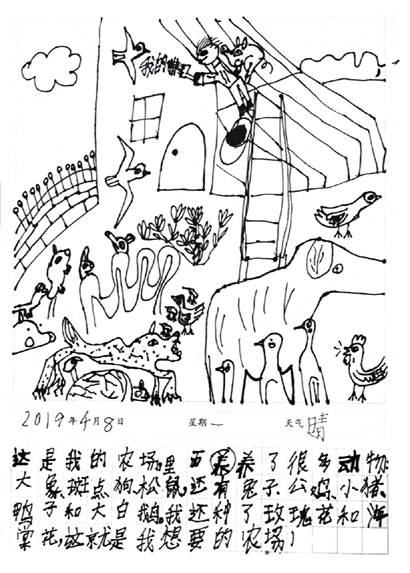 我的
2019年4月8日 星期一 天气 晴
这是我的农场,里面养了很多动物
大象、斑点狗、松鼠,还有兔子、公鸡、小猪、
鸭子和大白鹅。我还种了玫瑰花和海
棠花,这就是我想要的农场!